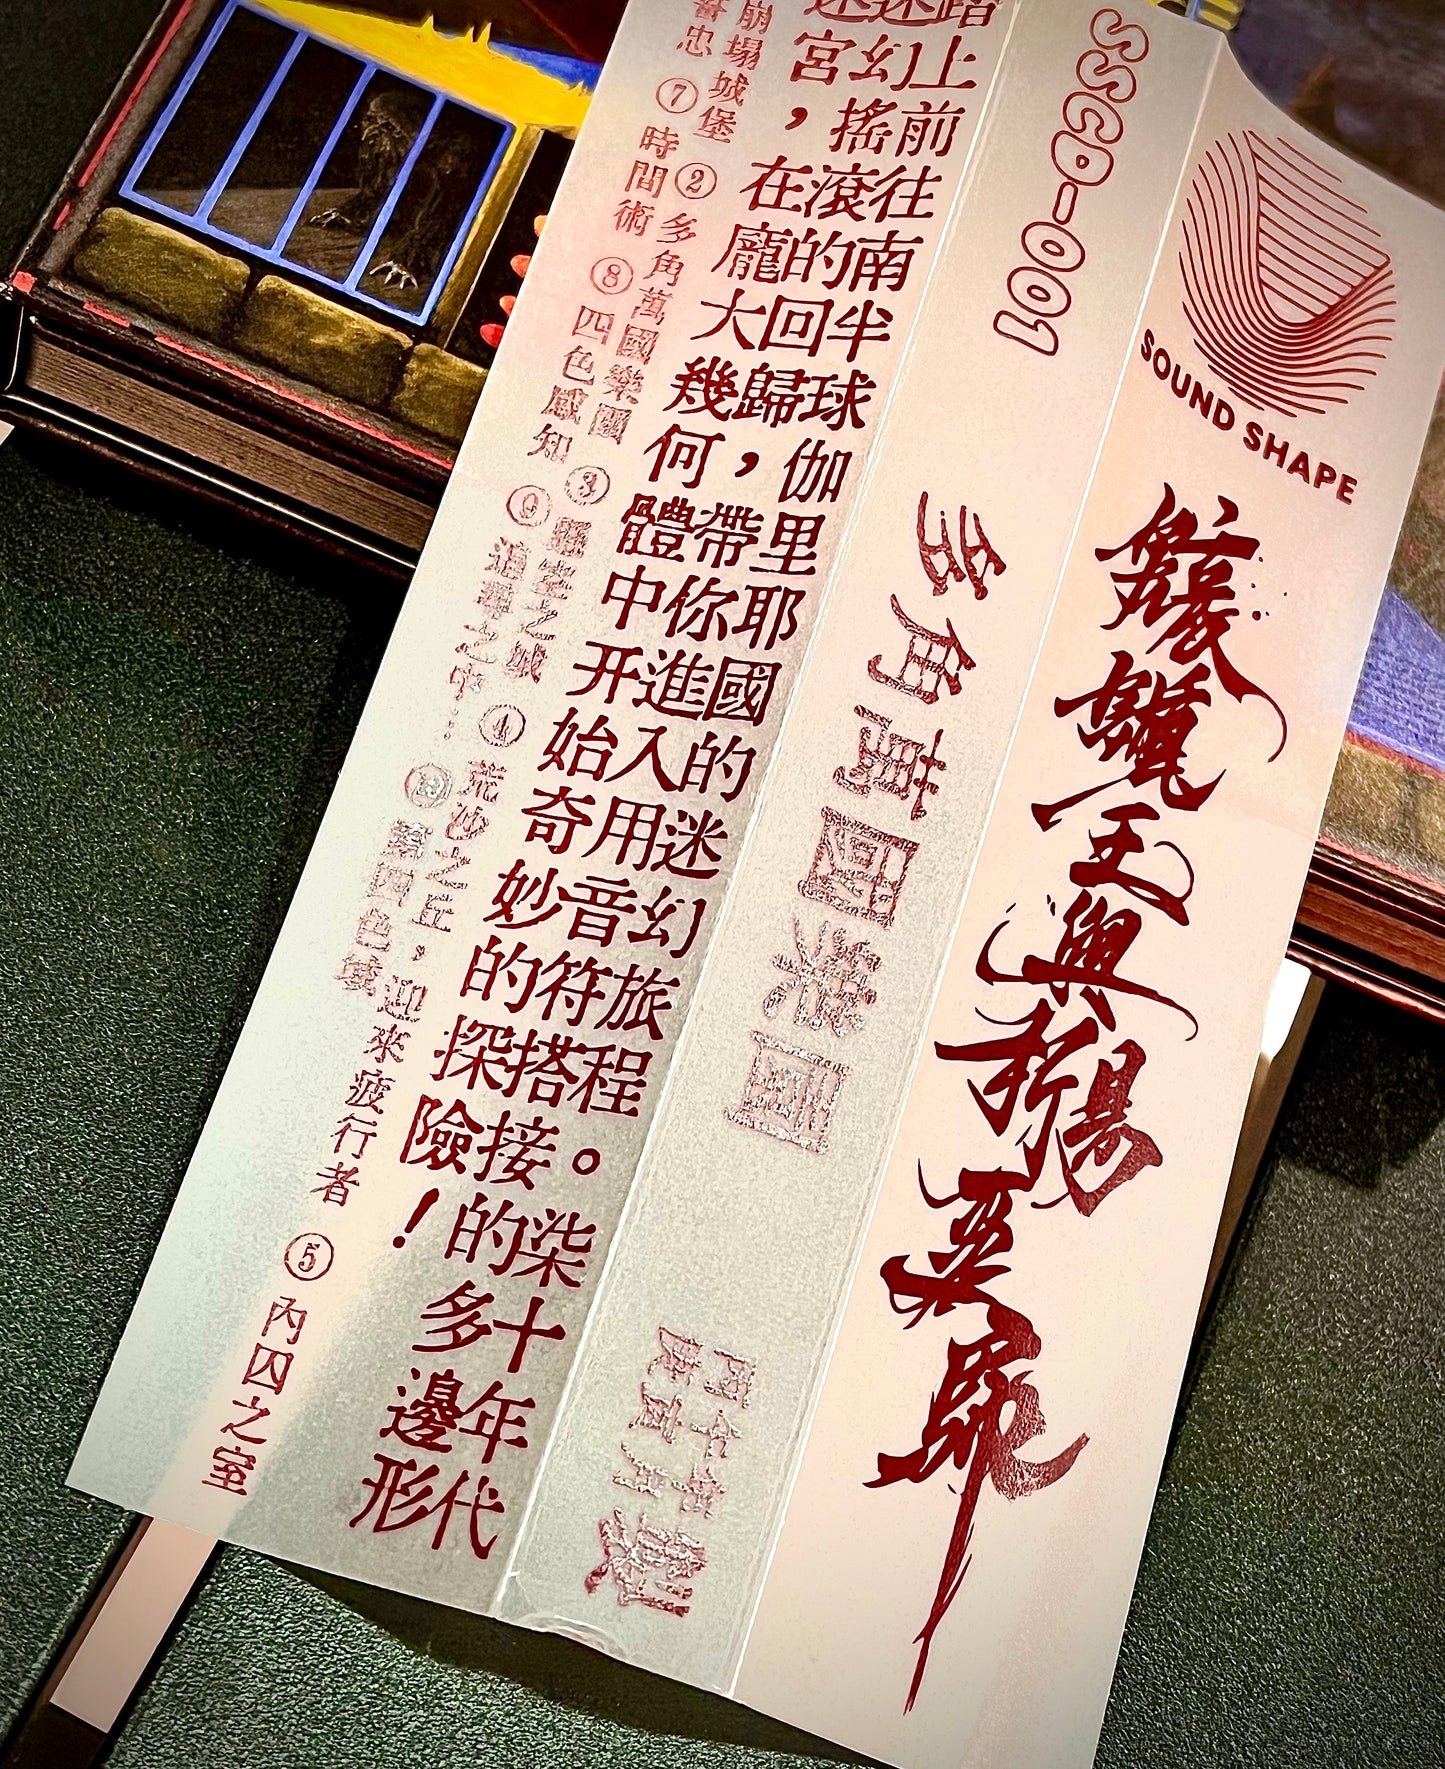 SOUND SHAPE
王與蜥蜴巫師
SSCD-001
多角萬國樂園
製
踏上前往南半球伽里耶國的迷幻旅程。柒十年代
迷幻搖滾的回歸，帶你進入用音符搭接的多邊形
迷宮，在龐大幾何體中开始奇妙的探險！
崩塌城堡 ② 多角萬國樂園 ③ 之城 ④ 荒沙之丘，迎來疲行者 ⑤ 內囚之室
忠 ⑦ 時間術 ⑧ 四色感知 ⑨ 追尋之中… ⑩ 第四色域